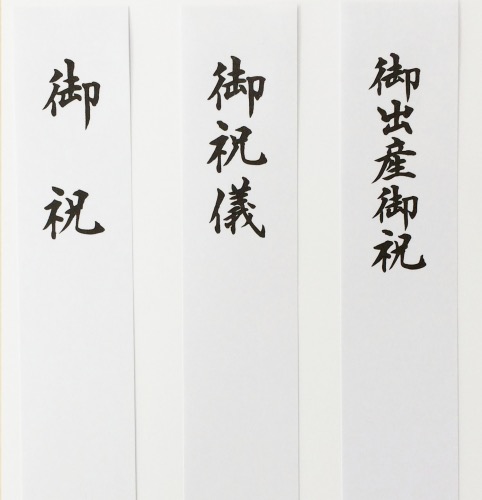 御祝
御祝儀
御出産御祝